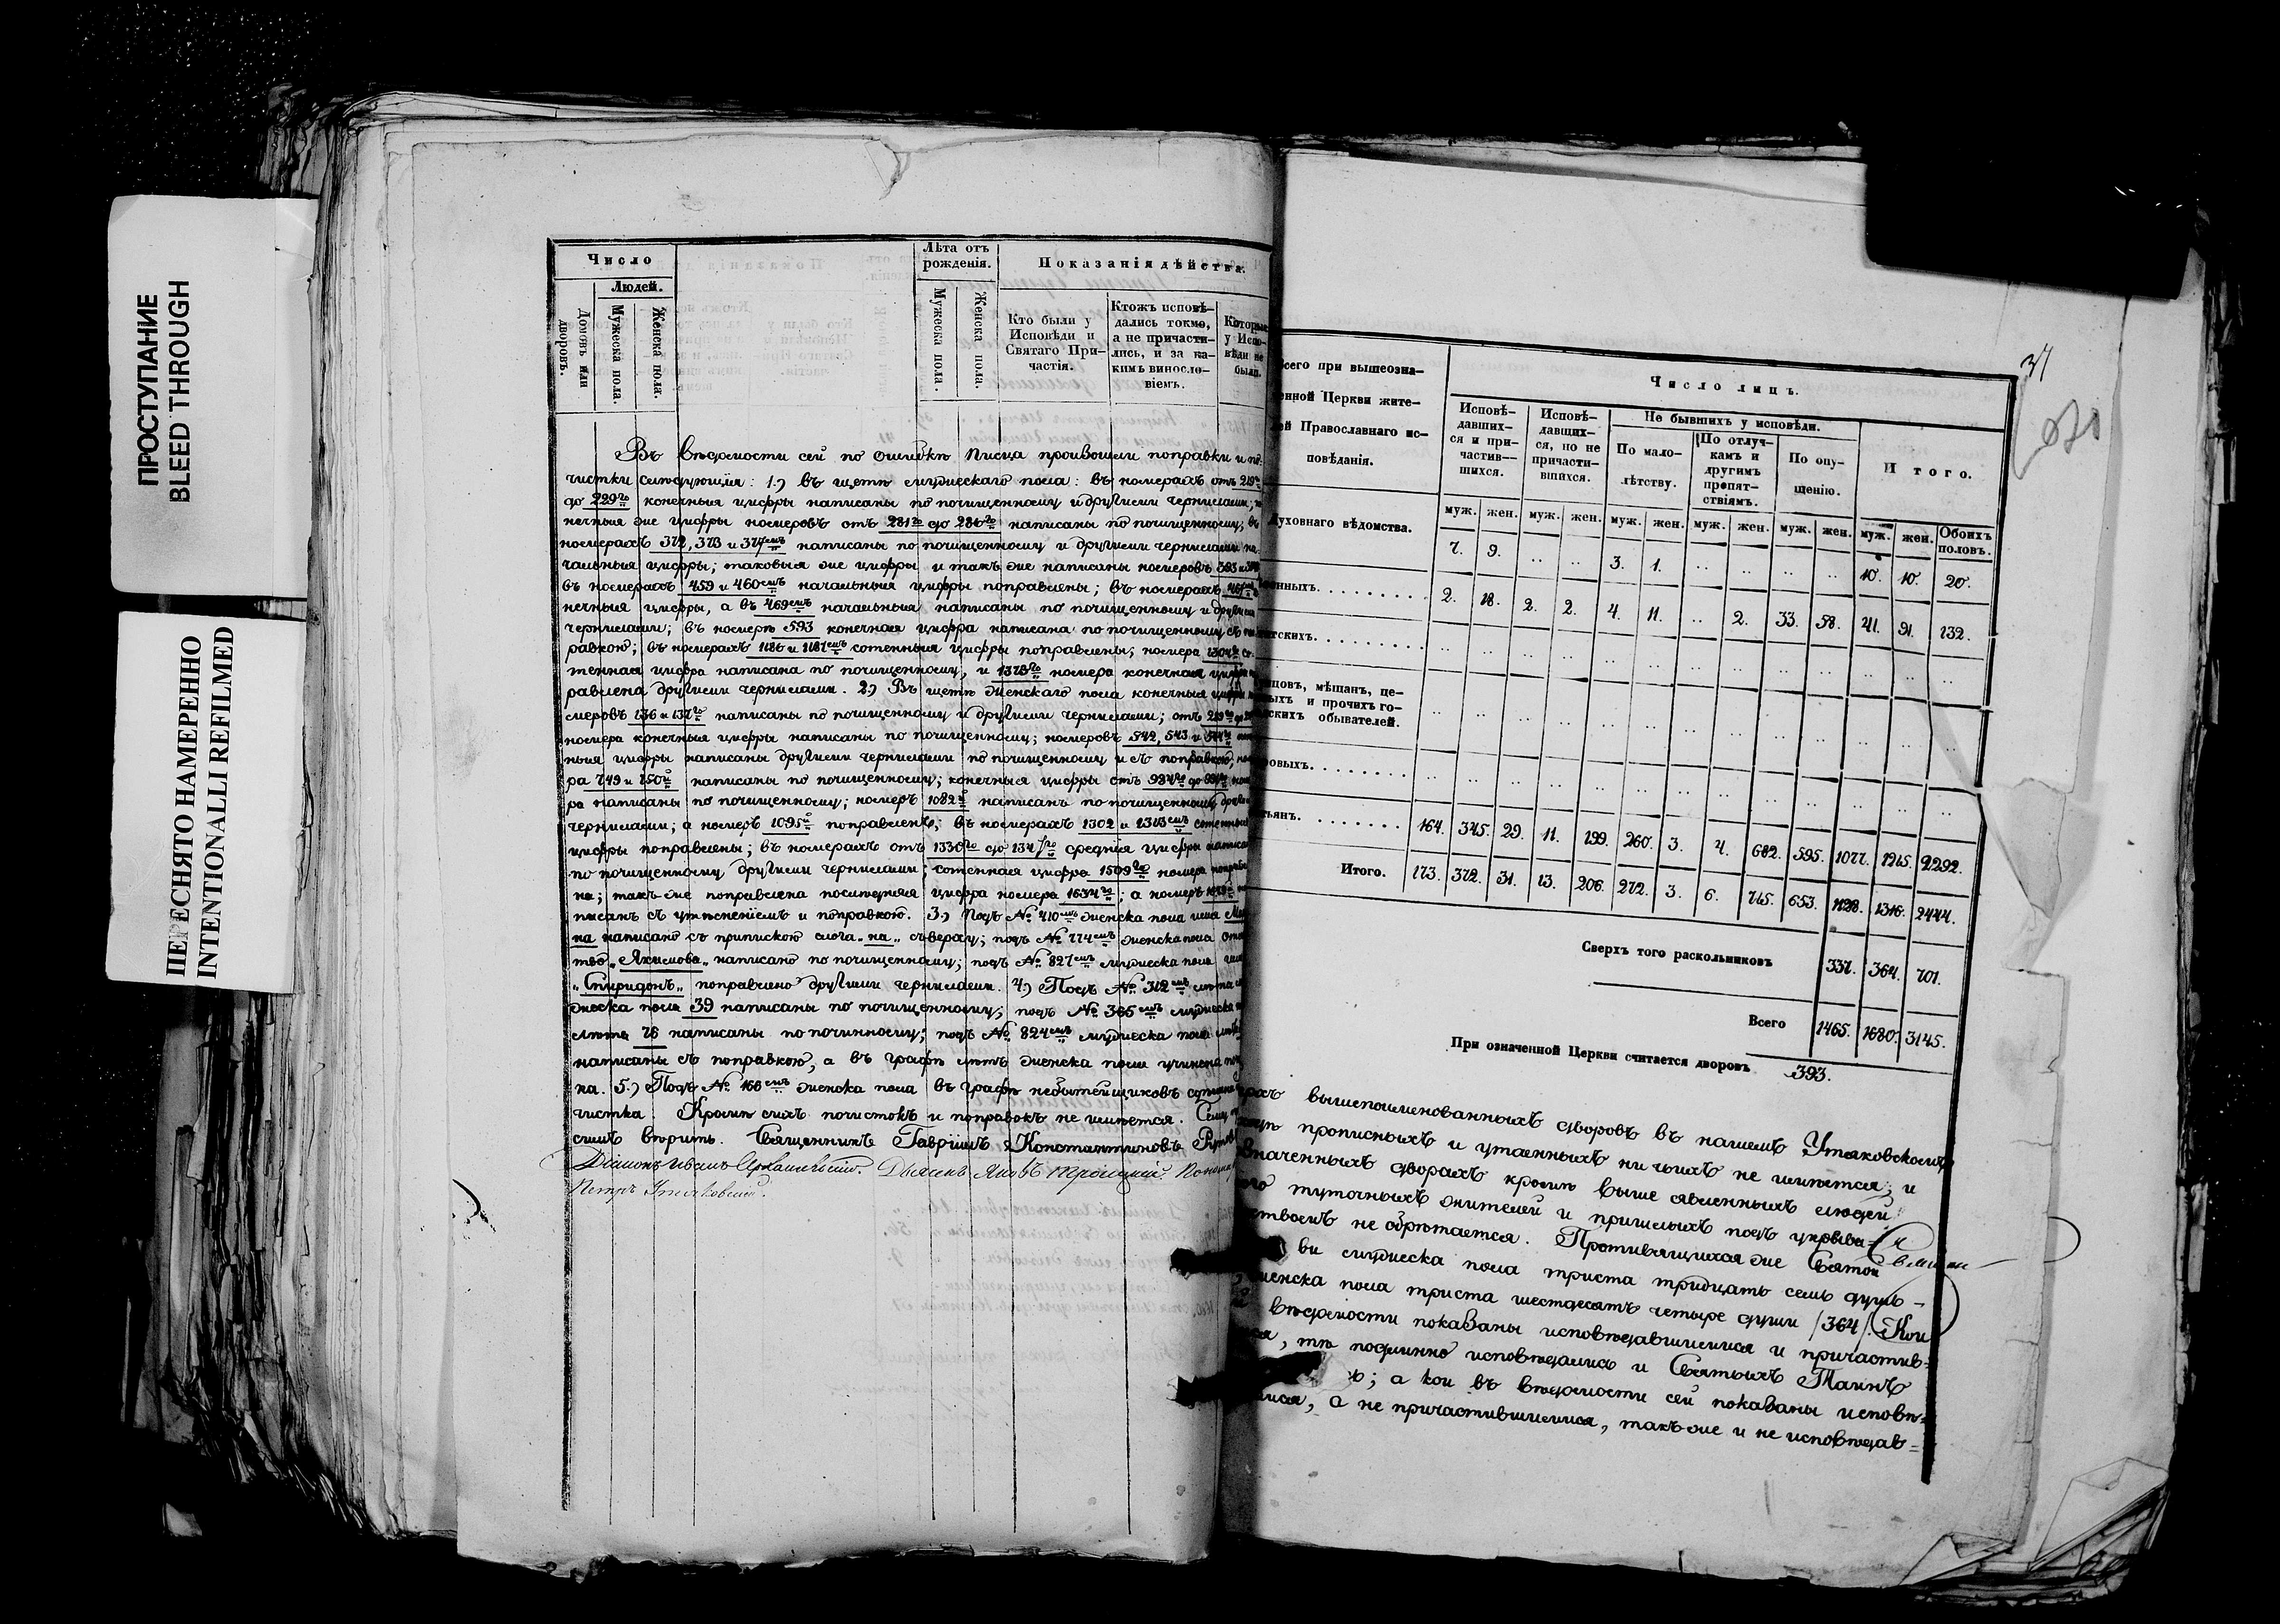 ПРОСТУПАНИЕ
BLEED THROUGH
ПЕРЕСНЯТО НАМЕРЕННО
INTENTIONALLI REFILMED
Число
Людей.
Домовъ или дворовъ.
Мужеска пола.
Женска пола.
Лѣта отъ рожденія.
Мужеска пола.
Женска пола.
Показанія дѣйства.
Кто были у Исповѣди и Святаго Причастія.
Ктожъ исповѣдались токмо, а не причастились, и за какимъ винословіемъ.
Которые у Исповѣди не были.
Въ вѣдомости сей по ошибкѣ писца произошли поправки и по-
чистки слѣдующія: 1.) въ щетѣ мужескаго пола: въ номерахъ отъ 219го
до 229го конечныя цифры написаны по почищенному и другими чернилами;
нечныя же цифры номеровъ отъ 281го до 286го написаны по почищенному; въ
номерахъ 372, 373 и 374мъ написаны по почищенному и другими чернилами на-
чальныя цифры; таковыя же цифры и такъ же написаны номеровъ 393
въ номерахъ 459 и 460мъ начальныя цифры поправлены; въ номерахъ
нечныя цифры, а въ 469мъ начальныя написаны по почищенному и другими
чернилами; въ номерѣ 593 конечная цифра написана по почищенному съ поп-
равкою; въ номерахъ 1186 и 1187мъ сотенныя цифры поправлены; номера 1304го со-
тенная цифра написана по почищенному, и 1378го номера конечная цифра
равлена другими чернилами. 2.) Въ щетѣ женскаго пола конечныя цифры
меровъ 136 и 137го написаны по почищенному и другими чернилами; отъ
номера конечныя цифры написаны по почищенному; номеровъ 542, 543 и 544го
ныя цифры написаны другими чернилами по почищенному и съ поправкою;
ра 749 и 750й написаны по почищенному; конечныя цифры отъ 984го до
ра написаны по почищенному; номеръ 1082й написанъ по почищенному другими
чернилами; а номеръ 1095й поправленъ; въ номерахъ 1302 и 1303мъ сотенныя
цифры поправлены; въ номерахъ отъ 1330го до 1347го среднія цифры написаны
по почищенному другими чернилами; сотенная цифра 1509го номера поправле-
на; такъ же поправлена послѣдняя цифра номера 1634го; а номеръ
писанъ съ утѣсненіемъ и поправкою. 3.) Подъ № 410мъ женска пола имя
на написано съ припискою слога „на„ сверху; подъ № 774мъ женска пола отче-
тво „Якимова„ написано по почищенному; подъ № 827мъ мужеска пола имя
„Спиридонъ„ поправлено другими чернилами. 4.) Подъ № 312мъ лѣта му-
жеска пола 39 написаны по почищенному; подъ № 365мъ мужеска
лѣта 76 написаны по почищенному; подъ № 824мъ мужеска пола лѣта
написаны съ поправкою, а въ графѣ лѣтъ женска пола учинена поч
ка. 5.) Подъ № 166мъ женска пола въ графѣ небытейщиковъ
чистка. Кромѣ сихъ почистокъ и поправокъ не имѣется.
симъ вѣрить. Священникъ Гавріилъ Константиновъ
Діаконъ Иванъ
Дьячекъ Яковъ Троицкій.
Петръ Утяковскій.
37
Всего при вышеозна-
ченной Церкви жите-
лей Православнаго ис-
повѣданія.
Число лицъ.
Исповѣдавшихся и причастившихся.
Исповѣдавшихся, но не причастившихся.
Не бывшихъ у исповѣди.
По малолѣтству.
По отлучкамъ и другимъ препятствіямъ.
По опущенію.
Итого.
муж. жен. муж. жен. муж. жен. муж. жен. муж. жен. муж. жен. Обоихъ половъ.
Духовнаго вѣдомства. 7. 9. .. .. 3. 1. .. .. .. .. 10. 10. 20.
Военныхъ. 2. 18. 2. 2. 4. 11. .. 2. 33. 58. 41. 91. 132.
Статскихъ. .. .. .. .. .. .. .. .. .. .. .. .. ..
Купцовъ, мѣщанъ, це-
ховыхъ и прочихъ го-
родскихъ обывателей. .. .. .. .. .. .. .. .. .. .. .. .. ..
Дворовыхъ. .. .. .. .. .. .. .. .. .. .. .. .. ..
Крестьянъ. 164. 345. 29. 11. 199. 260. 3. 4. 682. 595. 1077. 1215. 2292.
Итого. 173. 372. 31. 13. 206. 272. 3. 6. 715. 653. 1128. 1316. 2444.
Сверхъ того раскольниковъ 337. 364. 701.
Всего 1465. 1680. 3145.
При означенной Церкви считается дворовъ 393.
вышепоименованныхъ дворовъ въ нашемъ Утяковскомъ
прописныхъ и утаенныхъ ни чьихъ не имѣется; и
значенныхъ дворахъ кромѣ выше явленныхъ людей
туточныхъ жителей и пришлыхъ подъ укрыва-
тельствомъ не обрѣтается. Противящихся же Святой
ви мужеска пола триста тридцать семь душъ
женска пола триста шестдесятъ четыре души /364/. Кои
вѣдомости показаны исповѣдавшимися и причастив-
, тѣ подлинно исповѣдались и Святыхъ Таинъ
; а кои въ вѣдомости сей показаны исповѣ-
, а не причастившимися, такъ же и не исповѣдав-